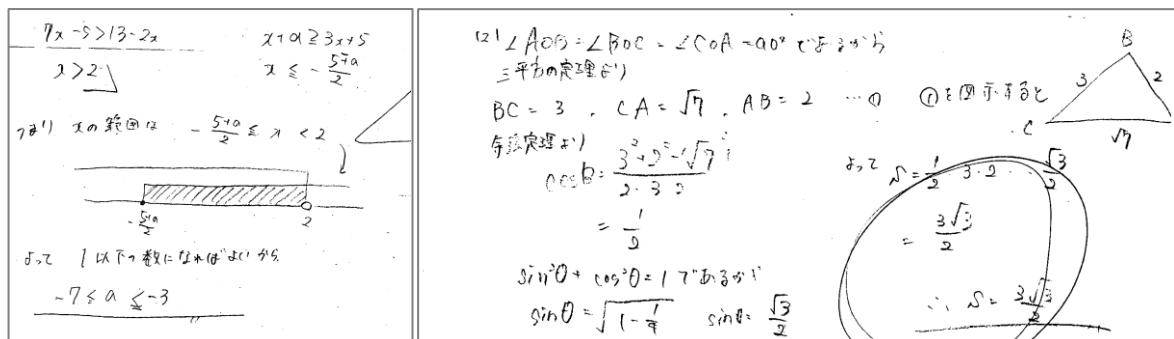 7x-5>13-2x
x>2
x+a≧3x+5
x≦-(5+a)/2
つまり xの範囲は -(5+a)/2≦x<2
-(5+a)/2
2
よって 1以下の数になればよいから
-7≦a≦-3
(2) ∠AOB=∠BOC=∠COA=90°であるから
三平方の定理より
BC=3, CA=√7, AB=2 …①
①を図示すると
B
3
2
C
√7
余弦定理より
=1/2
sin²θ+cos²θ=1であるから
sinθ=√3/2
よって
=3√3/2
∴ S=3√3/2